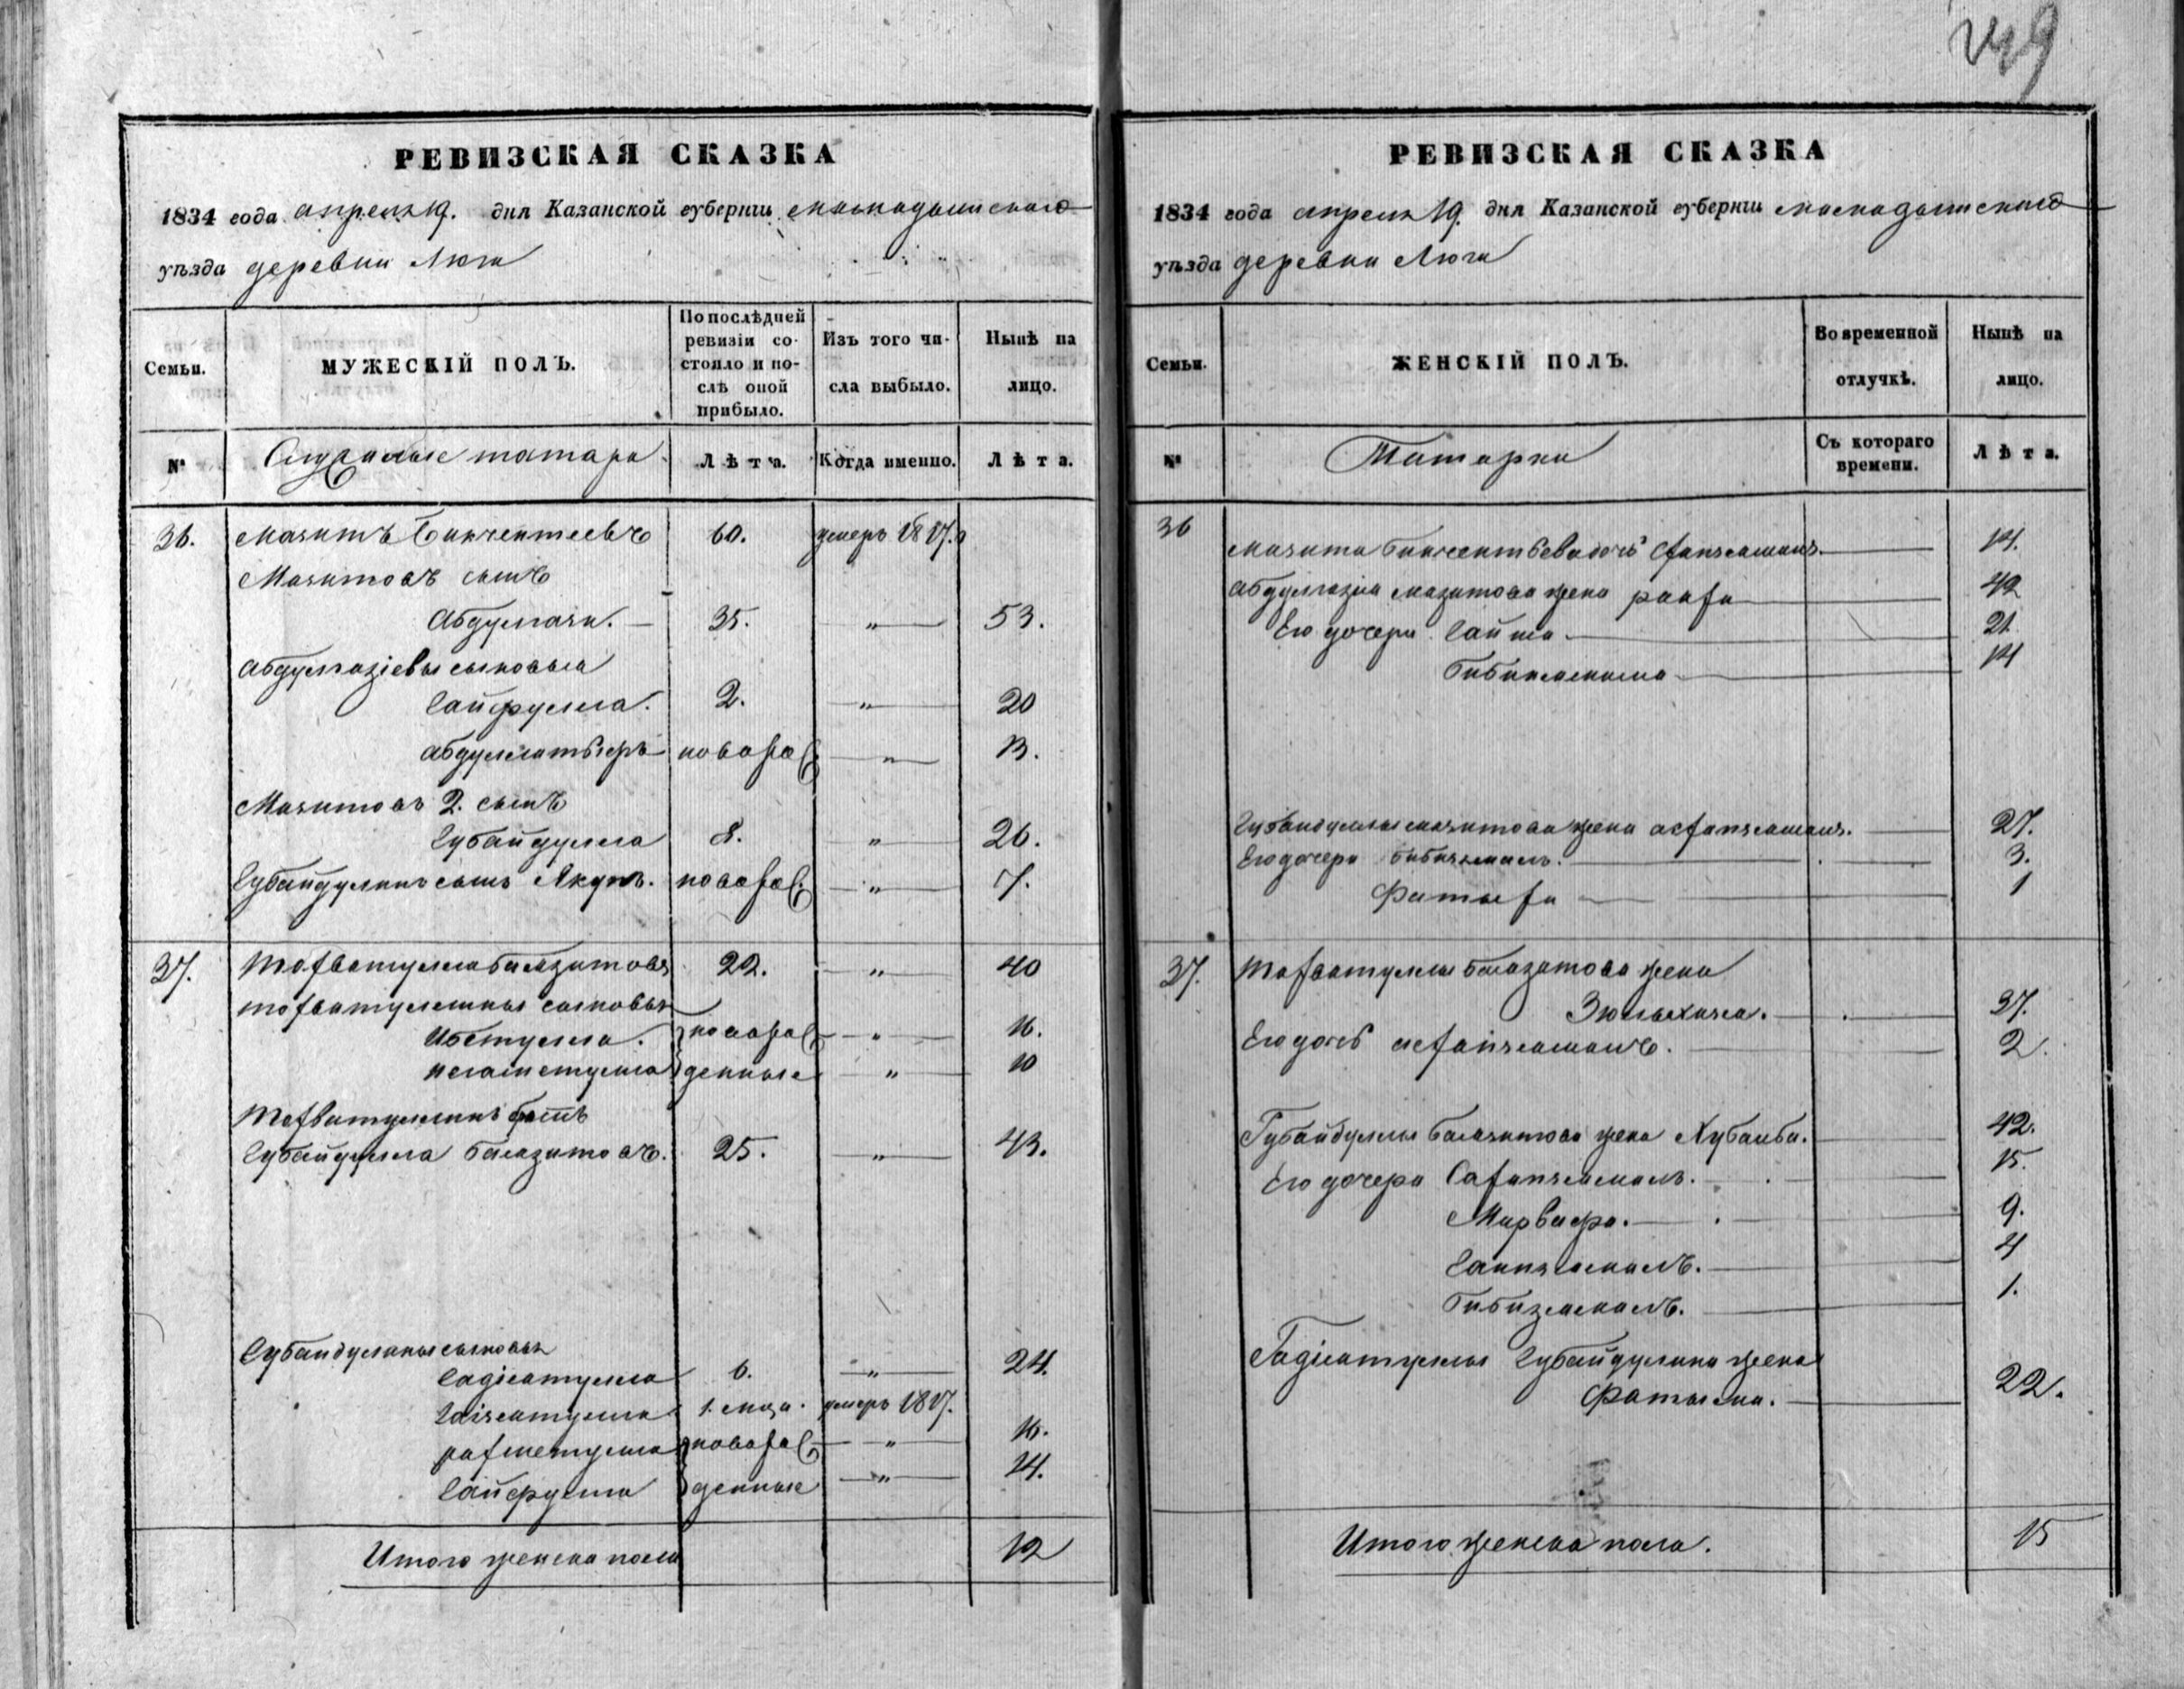 749
РЕВИЗСКАЯ СКАЗКА
1834 года апреля 19. дня Казанской губернiи мамадышскаго
уѣзда деревни Люги
Семьи.
МУЖЕСКІЙ ПОЛЪ.
По послѣдней ревизіи состояло и послѣ оной прибыло.
Изъ того числа выбыло.
Нынѣ на лицо.
№
Служилые татара.
Лѣта.
Когда именно.
Лѣта.
36. Мазитъ Бикчентеевъ 60. умеръ 1817.
Мазитовъ сынъ
Абдулгази. 35. " 53.
Абдулгазіевы сыновья
Сайфулла. 2. " 20
новорож "
13.
Мазитовъ 2. сынъ
Губайдулла 8. " 26.
Губайдулинъ сынъ Якупъ. новорож. " 7.
37. Тохватулла Баязитовъ 22. " 40
тохватуллины сыновья
новорож " 16.
денные " 10
Тохватуллинъ братъ
Губайдулла Баязитовъ. 25. " 43.
Губайдулины сыновья
Садіатулла 6. " 24.
1. умеръ 1817.
рахметулла новорож " 16.
Сайфулла денные " 14.
Итого женска пола 12
РЕВИЗСКАЯ СКАЗКА
1834 года апреля 19. дня Казанской губернiи мамадышскаго
уѣзда деревни Люги
Семьи.
ЖЕНСКІЙ ПОЛЪ.
Во временной отлучкѣ.
Нынѣ на лицо.
№
Татарки
Съ котораго времени.
Лѣта.
36 Мазита дочь 14.
Абдулгазіа мазитова жена 42
Его дочери 21
14
Губайдуллы мазитова жена 27.
Его дочери 3.
1
37. Тохватуллы Баязитова жена
Зюльхиза. 37.
Его дочь 2.
Губайдуллы баязитова жена Хубаиба. 42.
Его дочери 15.
Марвафа. 9.
4
Бибизямалъ. 1.
Губайдулина жена
Фатыма. 22.
Итого женска пола. 15